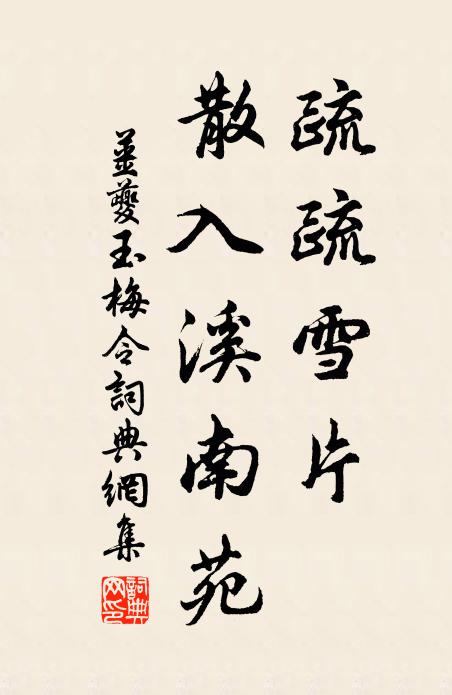 疏疏雪片
散入溪南苑
姜夔玉梅令詞典網集
詞典
网印